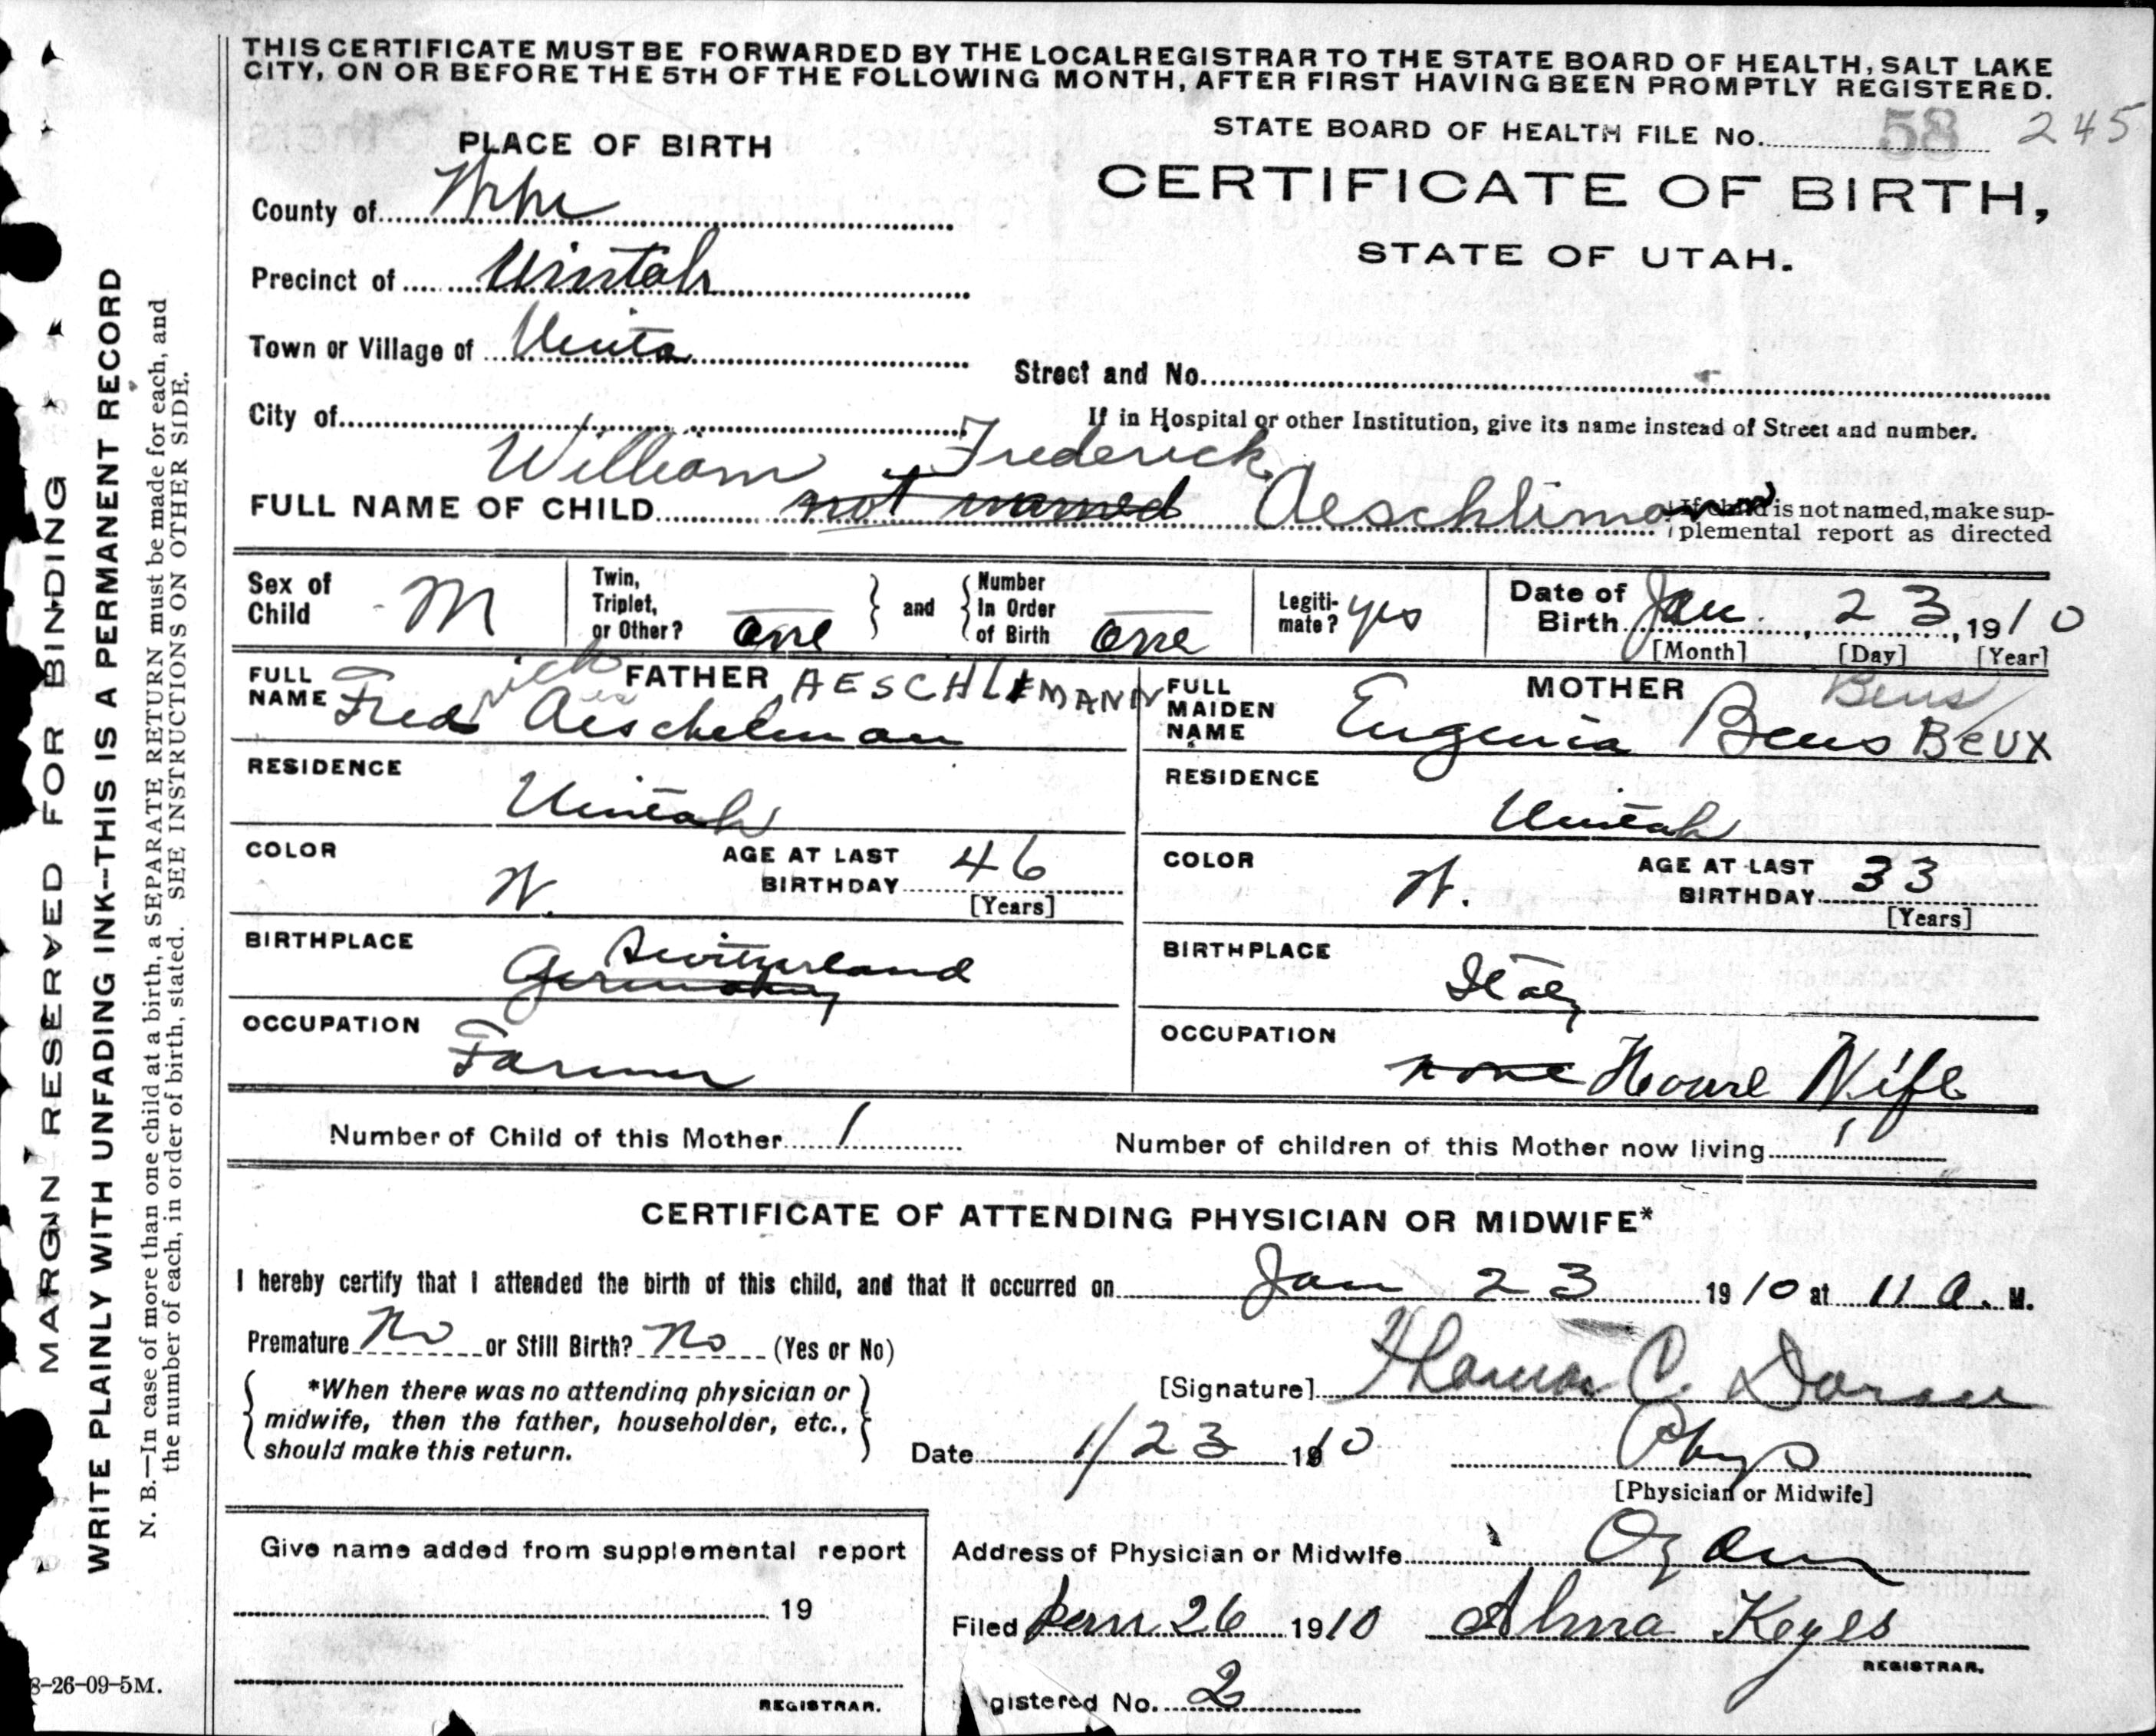 THIS CERTIFICATE MUST BE FORWARDED BY THE LOCAL REGISTRAR TO THE STATE BOARD OF HEALTH, SALT LAKE
CITY, ON OR BEFORE THE 5TH OF THE FOLLOWING MONTH, AFTER FIRST HAVING BEEN PROMPTLY REGISTERED.
STATE BOARD OF HEALTH FILE No. 58 245
PLACE OF BIRTH
CERTIFICATE OF BIRTH,
STATE OF UTAH.
County of
Precinct of Uintah
Town or Village of Uinta
Street and No.
City of
If in Hospital or other Institution, give its name instead of Street and number.
William Frederick
FULL NAME OF CHILD not named Aeschliman
If child is not named, make sup-
plemental report as directed
Sex of Child M
Twin, Triplet, or Other? one
and
Number In Order of Birth one
Legiti-mate? yes
Date of Birth Jan. 23, 1910
[Month] [Day] [Year]
FATHER AESCHLIMANN
FULL NAME Fred rick Aeschelman
MOTHER Beus
FULL MAIDEN NAME Eugenia Beus BEUX
RESIDENCE Uintah
RESIDENCE Uintah
COLOR W. AGE AT LAST BIRTHDAY 46 [Years]
COLOR W. AGE AT LAST BIRTHDAY 33 [Years]
BIRTHPLACE Germany Switzerland
BIRTHPLACE Italy
OCCUPATION Farmer
OCCUPATION none House Wife
Number of Child of this Mother 1
Number of children of this Mother now living 1
CERTIFICATE OF ATTENDING PHYSICIAN OR MIDWIFE*
I hereby certify that I attended the birth of this child, and that it occurred on Jan 23 1910 at 11 a. M.
Premature No or Still Birth? No (Yes or No)
*When there was no attending physician or
midwife, then the father, householder, etc.,
should make this return.
[Signature] Thomas C.
Date 1/23 1910
Phys
[Physician or Midwife]
Give name added from supplemental report
19
REGISTRAR.
Address of Physician or Midwife
Filed Jan 26 1910 Alma Keyes
REGISTRAR.
gistered No. 2
MARGIN RESERVED FOR BINDING
WRITE PLAINLY WITH UNFADING INK--THIS IS A PERMANENT RECORD
N. B.—In case of more than one child at a birth, a SEPARATE RETURN must be made for each, and
the number of each, in order of birth, stated. SEE INSTRUCTIONS ON OTHER SIDE.
8-26-09-5M.